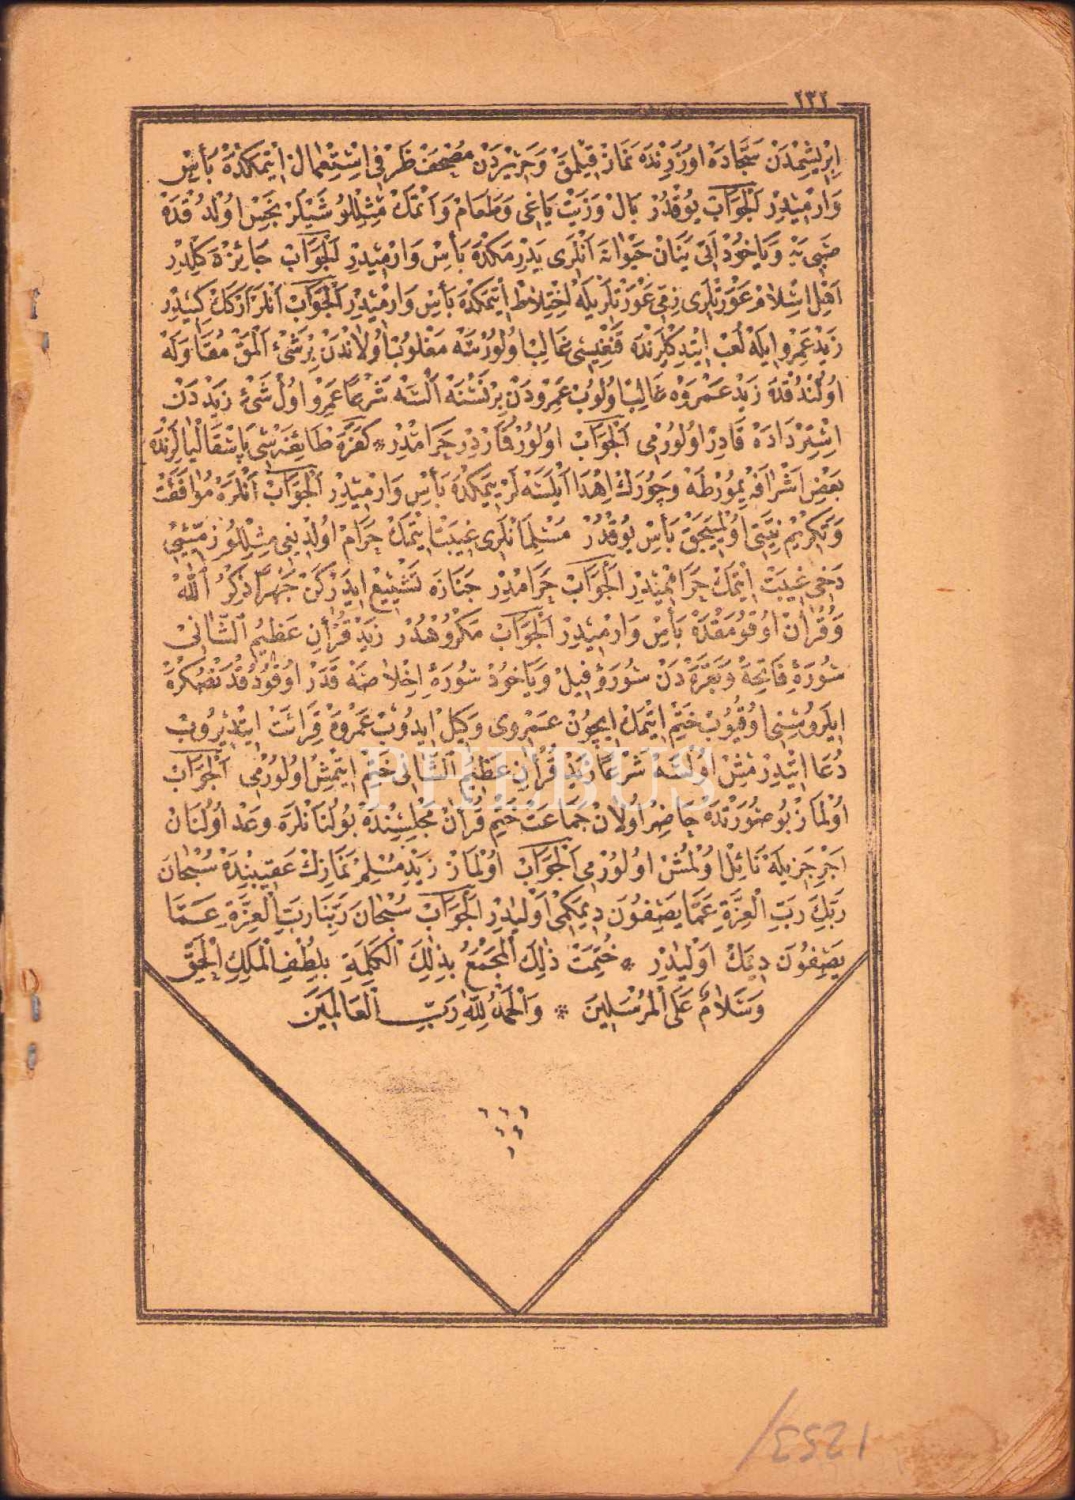 ٢٣٢
ابريشمدن سجاده اوزرنده نماز قيلمق وحريردن مصحف ظرفى استعمال ايتمكده بأس
وارميدر الجواب يوقدر بال وزيت ياغى وطعام واتمك مثللو شيلر نجس اولدقده
صبىيه وياخود اتى ينان حيوانه انلرى يدرمكده بأس وارميدر الجواب جائزه كلدر
اهل اسلام عورتلرى ذمى عورتلريله اختلاط ايتمكده بأس وارميدر الجواب انلر اركك كبيدر
زيد عمرو ايله لعب ايتدكلرنده قنغيسى غالب اولورسه مغلوب اولاندن برشئ المق مقاوله
اولندقده زيد عمروه غالب اولوب عمرودن برنسنه السه شرعا عمرو اول شئ زيددن
استرداده قادر اولورمى الجواب اولور قماردر حرامدر * كفره طائفه سى پاسقاليالرنده
بعض اشرافه يمورطه وچورك اهدا ايلسه لر يمكده بأس وارميدر الجواب انلره موافقت
وتكريم نيتى اولميجق بأس يوقدر مسلمانلرى غيبت ايتمك حرام اولديغى مثللو ذمييى
دخى غيبت ايتمك حراممیدر الجواب حرامدر جنازه تشييع ايدركن جهرا ذكر الله
وقرآن اوقومقده بأس وارميدر الجواب مكروهدر زيد قرآن عظيم الشانى
سورۀ فاتحه وبقره دن سورۀ فيل وياخود سورۀ اخلاصه قدر اوقودقدنصكره
ايلروسنى اوقيوب ختم ايتمك ايچون عمروى وكيل ايدوب عمروه قرائت ايتديروب
دعا ايتديرمش اولسه شرعا زيد قرآن عظيم الشانى ختم ايتمش اولورمى الجواب
اولماز بو صورتده حاضر اولان جماعت ختم قرآن مجلسنده بولنانلره وعد اولنان
اجر جزيله نائل اولمش اولورمى الجواب اولماز زيد مسلم نمازك عقيبنده سبحان
ربك رب العزة عما يصفون ديمكمى اوليدر الجواب سبحان ربنا رب العزة عما
يصفون ديمك اوليدر * ختمت ذلك المجمع بذلك الكلمة بلطف الملك الحق
وسلام على المرسلين * والحمد لله رب العالمين
PHEBUS
1253/